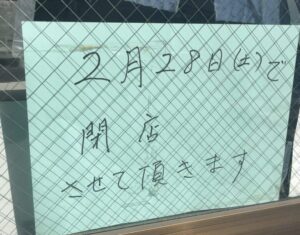 2月28日(土)で
閉店
させて頂きます